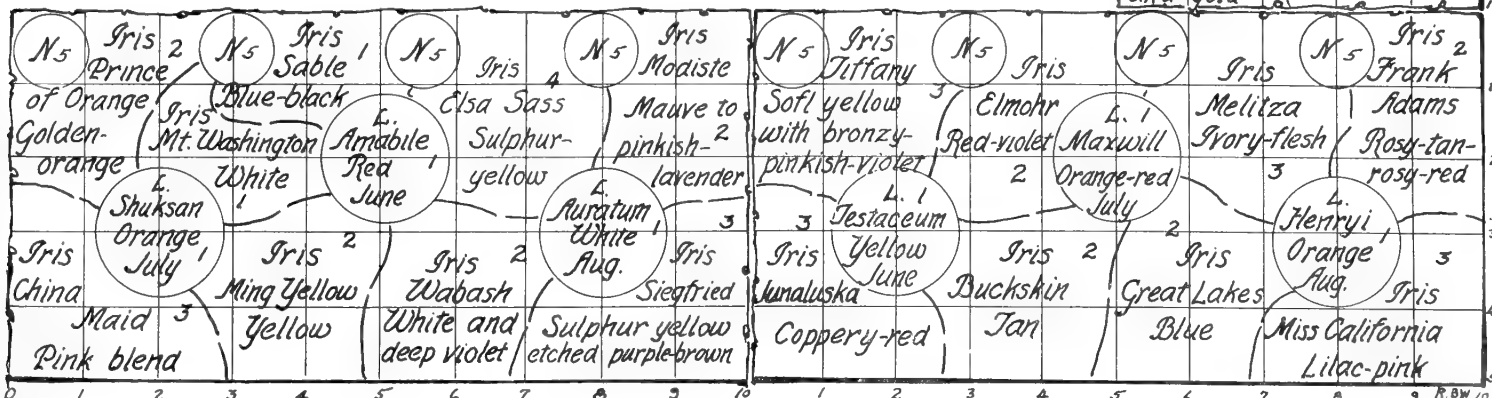 N 5
Iris 2
Prince
of Orange
Golden-
orange
N 5
Iris 1
Sable
Blue-black
Iris
Mt. Washington
White
1
N 5
Iris 4
Elsa Sass
Sulphur-
yellow
N 5
Iris
Modiste
Mauve to
pinkish- 2
lavender
L.
Amabile
Red 1
June
L.
Shuksan
Orange
July 1
L.
Auratum
White 1
Aug.
Iris
China
Maid 3
Pink blend
Iris 2
Ming Yellow
Yellow
Iris 2
Wabash
White and
deep violet
3
Iris
Siegfried
Sulphur yellow
etched purple-brown
0 1 2 3 4 5 6 7 8 9 10
N 5
Iris
Tiffany
Soft yellow 3
with bronzy-
pinkish-violet
N 5
Iris
Elmohr
Red-violet
2
N 5
Iris
Melitza
Ivory-flesh
3
N 5
Iris 2
Frank
Adams
Rosy-tan-
rosy-red
L. 1
Maxwill
Orange-red
July
L. 1
Testaceum
Yellow
June
L.
Henryi
Orange 1
Aug.
3
Iris
Junaluska
Coppery-red
Iris 2
Buckskin
Tan
2
Iris
Great Lakes
Blue
3
Iris
Miss California
Lilac-pink
1 2 3 4 5 6 7 8 9 10
R.BW
3
4